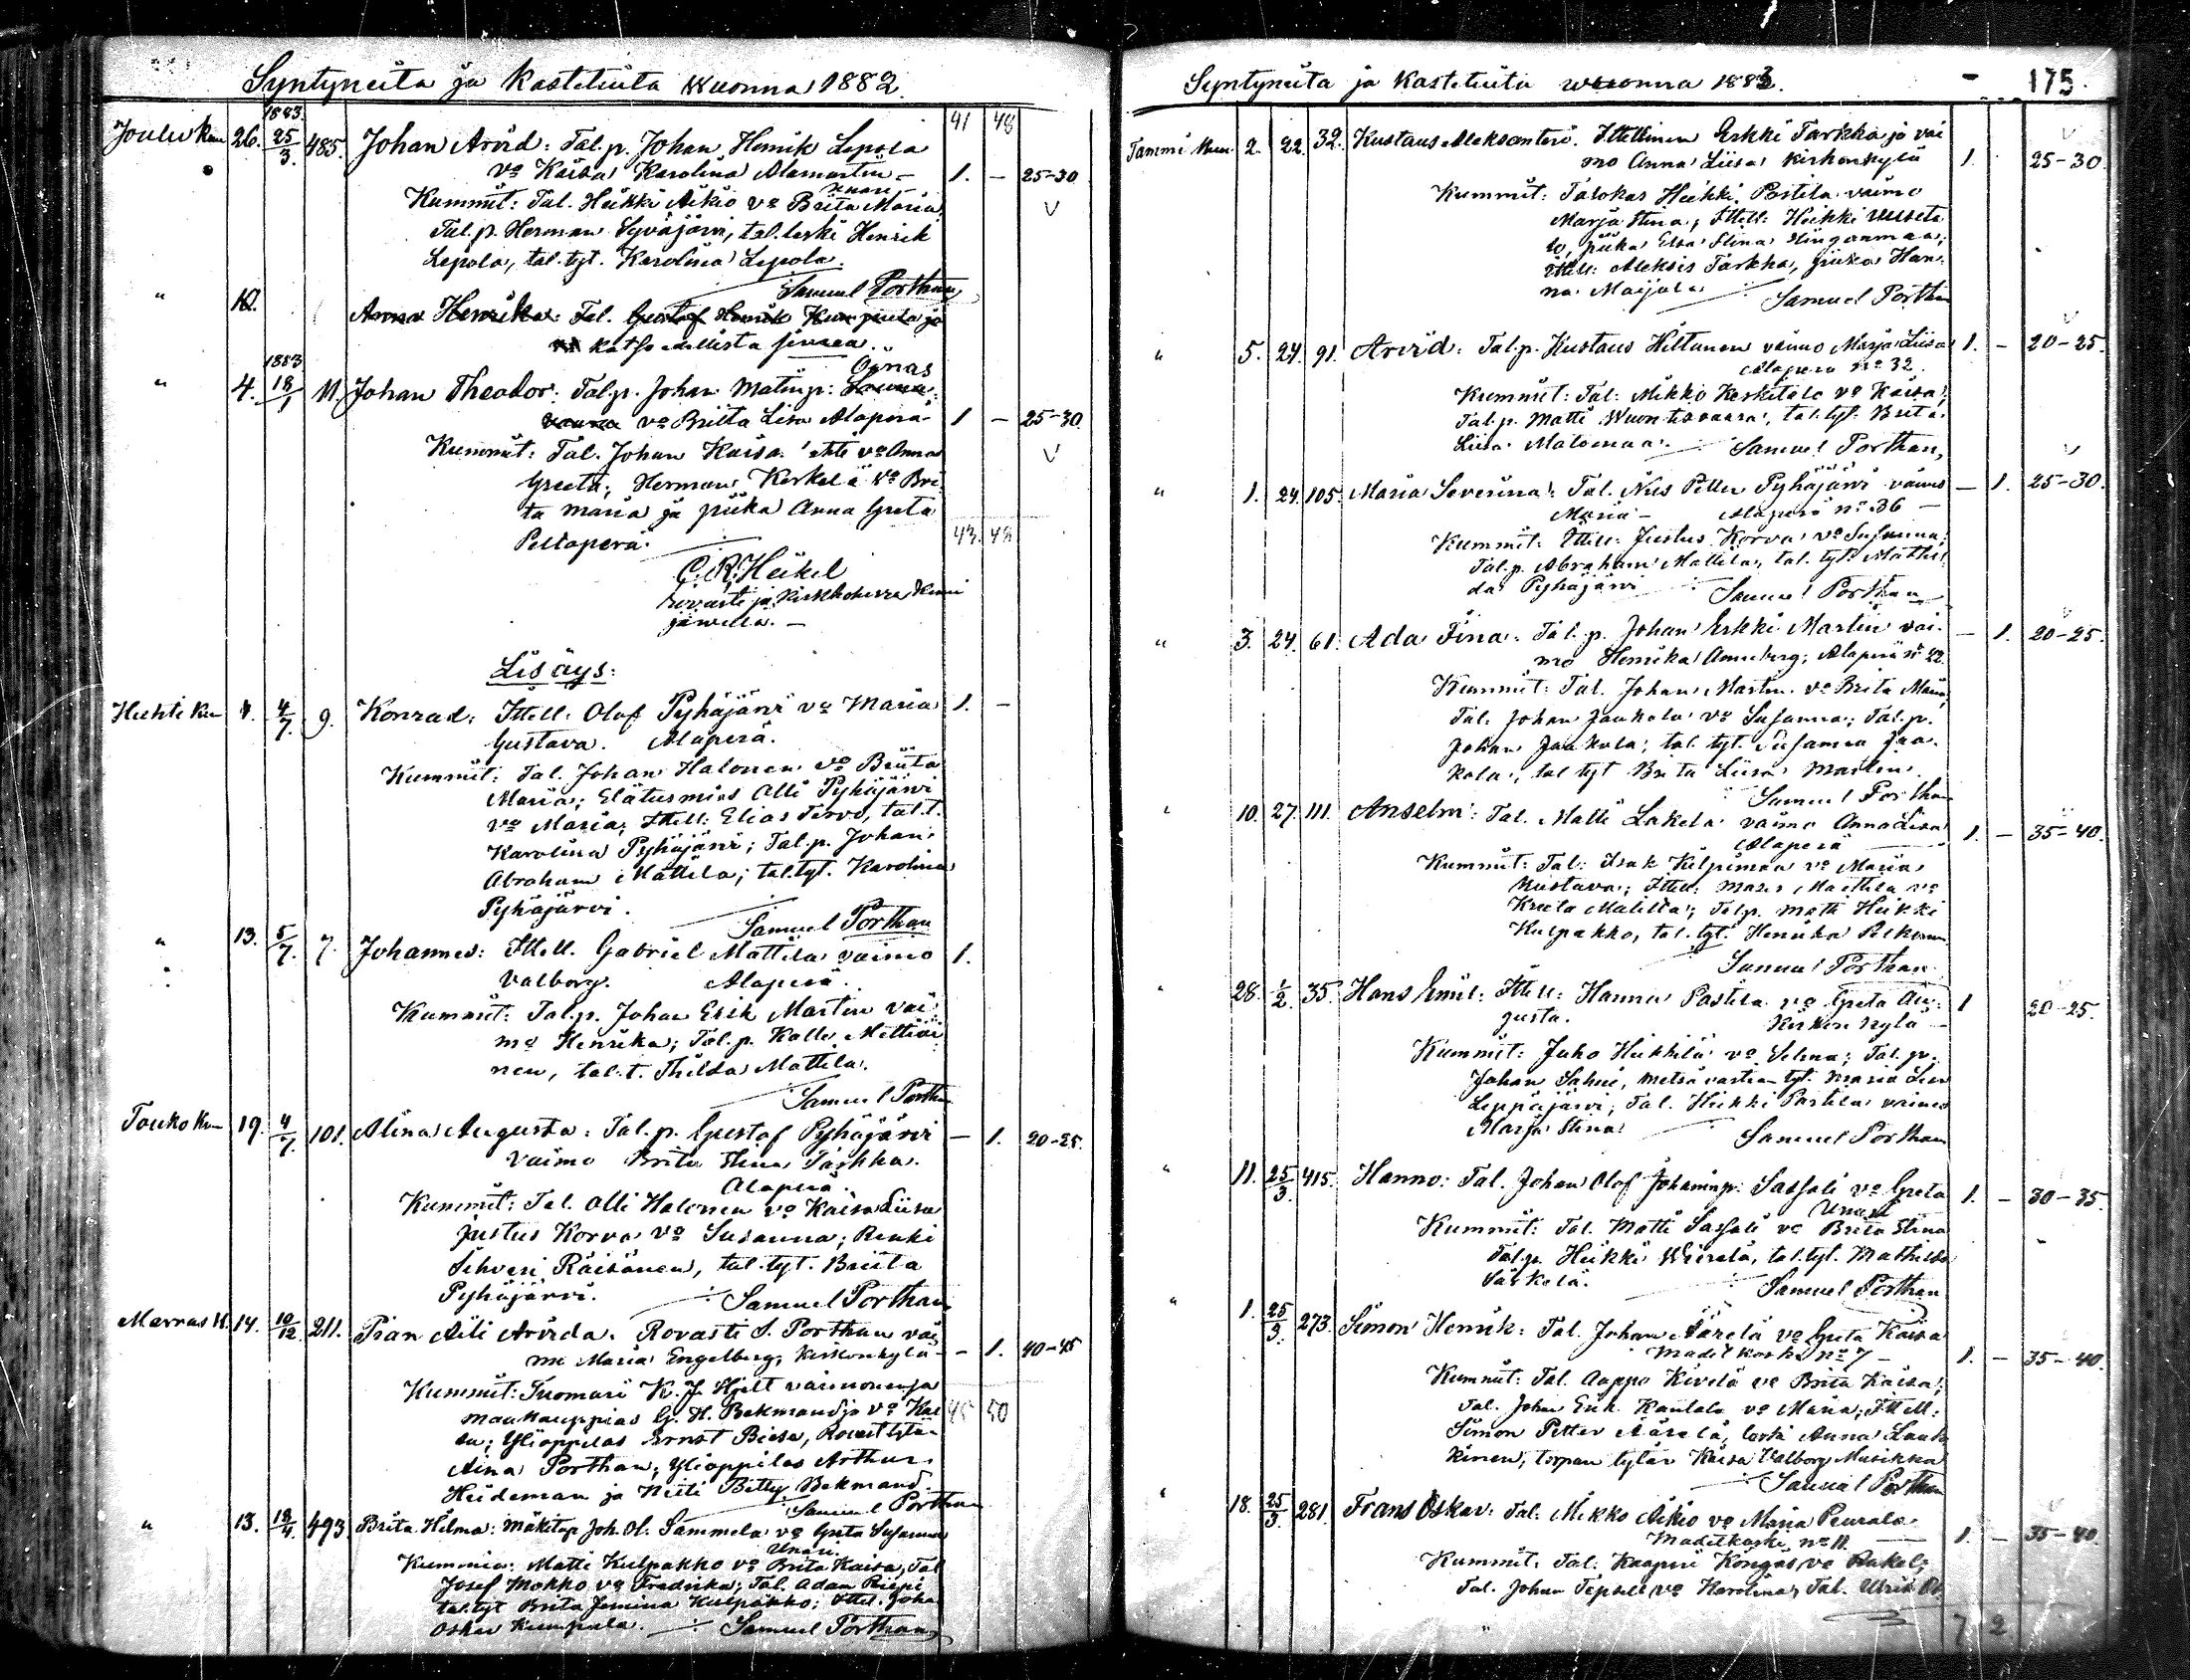 Syntyneitä ja Kastetuita wuonna 1882.
1883. 41 48
Joulu kuu 26. 25/3. 485. Johan Arvid: Tal.p. Johan Henrik Lepola
vo Kaisa Karolina Alamartin – 1. – 25-30
Unari –
Kummit: Tal. Heikki Aikio vo Brita Maria,
Tal.p. Herman Syväjärvi, tal. leski Henrik
Lepola, tal. tyt. Karolina Lepola.
Samuel Porthan
" 10. Anna Henrika: Tal. Gustaf Henrik Kumpula ja
katso edellistä sivua.
1883 Ounas
" 4. 18/1 11. Johan Theodor: Tal.p. Johan Matinp.
vaara vo Britta Lisa Alaperä 1 – 25-30.
Kummit: Tal. Johan Kaisa vo Anna
Greeta; Herman Kerkelä vo Bri
ta Maria ja piika Anna Greta
Peltoperä. 43. 48
C. R. Heikel
rovasti ja Kirkkoherra Kemi
järvellä. –
Lisäys:
Huhti kuu 4. 4/7. 9. Konrad: Ittell. Olof Pyhäjärvi vo Maria 1. –
Gustava. Alaperä.
Kummit: Tal. Johan Halonen vo Briita
Maria; Elätusmies Olli Pyhäjärvi
vo Maria; Ittell: Elias Tervo, tal. t.
Karolina Pyhäjärvi; Tal.p. Johan
Abraham Mattila; tal. tyt. Karolina
Pyhäjärvi.
Samuel Porthan
" 13. 5/7. 7. Johannes: Ittell. Gabriel Mattila vaimo 1.
Valborg. Alaperä.
Kummit: Tal.p. Johan Erik Martin vai
mo Henrika; Tal.p. Kalle Mettiäi
nen, tal. t. Thilda Mattila.
Samuel Porthan
Touko kuu 19. 4/7. 101. Alina Augusta: Tal.p. Gustaf Pyhäjärvi – 1. 20-25.
Vaimo Brita Stina Tarkka.
Alaperä.
Kummit: Tal. Olli Halonen vo Kaisa Liisa
Justus Korva vo Susanna; Renki
Sihveri Räisänen, tal. tyt. Briita
Pyhäjärvi. Samuel Porthan
Marras k. 14. 10/12. 211. Pian Aili Arvida. Rovasti S. Porthan vai
mo Maria Engelberg, Kirkonkylä – – 1. 40-45
Kummit: Tuomari K. J. Hjelt vaimonensa
Maakauppias G. H. Bekmand ja vo Kai 45 50
sa; Ylioppilas Ernst Biese, Rovast. tytär
Aina Porthan; Ylioppilas Arthur
Heideman ja Neiti Betty Bekmand.
Samuel Porthan
" 13. 18/4. 493 Brita Helma: Mäkitup. Joh. Ol. Sammela vo Greta Susanna
Unari.
Kummia: Matti Kulpakko vo Brita Kaisa, Tal
Josef Mokko vo Fredrika; Tal. Adam Riipi
tal. tyt Brita Jemina Kulpakko; Ittel. Joha
Oskar Kumpula. Samuel Porthan
Syntyneitä ja Kastetuita wuonna 1883. – 175.
Tammi kuu 2. 22. 32. Kustaus Aleksanteri. Ittellinen Erkki Tarkka ja vai
mo Anna Liisa Kirkonkylä 1. 25-30.
Kummit: Talokas Heikki Postila vaimo
Marja Stina; Ittell: Heikki
lo, piika Elsa Stina Hiinganmaa;
Ittell: Aleksis Tarkka, piika Han
na Maijala
Samuel Porthan
" 5. 24. 91. Arvid: Tal.p. Kustaus Hiltunen vaimo Marja Liisa 1. – 20-25.
Alaperä No 32.
Kummit: Tal: Mikko Keskitalo vo Kaisa;
Tal.p. Matti Wuontisvaara, tal. tyt. Brita
Liisa Matomaa. Samuel Porthan,
" 1. 24. 105. Maria Severina: Tal. Nils Petter Pyhäjärvi vaimo – 1. 25-30.
Maria – Alaperä No 36 –
Kummit: Ittell: Justus Korva vo Susanna;
Tal.p. Abraham Mattila, tal. tyt. Mathil
da Pyhäjärvi Samuel Porthan
" 3. 24. 61. Ada Fina: Tal.p. Johan Erkki Martin vai – 1. 20-25.
mo Henrika Anneberg; Alaperä No 22.
Kummit: Tal. Johan Martin vo Brita Maria,
Tal. Johan Jaakola vo Susanna; Tal.p.
Johan Jaakola; tal. tyt. Susanna Jaa
kola; tal tyt Brita Liisa Martin.
Samuel Porthan
" 10. 27. 111. Anselm: Tal. Matti Lakela vaimo Anna Liisa 1. – 35-40.
Alaperä
Kummit: Tal: Isak Kilpimaa vo Maria
Kustava; Ittell: Mats Mattila vo
Kreeta Matilta; Tal.p. Matti Heikki
Kulpakko, tal. tyt. Henrika Pelkonen
Samuel Porthan
" 28. 1/2. 35. Hans Emil: Ittell: Hannu Postila vo Greta Au 1 20-25.
gusta. Kirkon kylä –
Kummit: Juho Heikkilä vo Selma; Tal.p.
Johan Sahne, metsävartia tyt. Maria Liisa
Leppäjärvi; Tal. Heikki Postila vaimo
Marja Stina Samuel Porthan
" 11. 25/3. 415. Hanno: Tal. Johan Olof Johaninp. Sassali vo Greta 1. – 30-35.
Unari
Kummit: Tal. Matti Sassali vo Brita Stina
Tal.p. Heikki Wierelä, tal. tyt. Mathilda
Särkelä. Samuel Porthan
" 1. 25/3. 273. Simon Henrik: Tal. Johan Äärelä vo Greta Kaisa
Madetkoski No 7 – 1. – 35-40.
Kummit: Tal. Aappo Kivelä vo Brita Kaisa;
Tal. Johan Erik Kantola vo Maria; Ittell:
Simon Petter Äärelä, leski Anna Laak
kinen; torpan tytär Kaisa Valborg Musikka
Samuel Porthan
" 18. 25/3. 281. Frans Oskar: Tal: Mikko Aikio vo Maria Peurala
Madetkoski No 11. 1. – 35-40.
Kummit: Tal: Kaapri Köngas vo Rakel;
Tal. Johan Tepsell vo Karolina, Tal. Ulrik
7 2